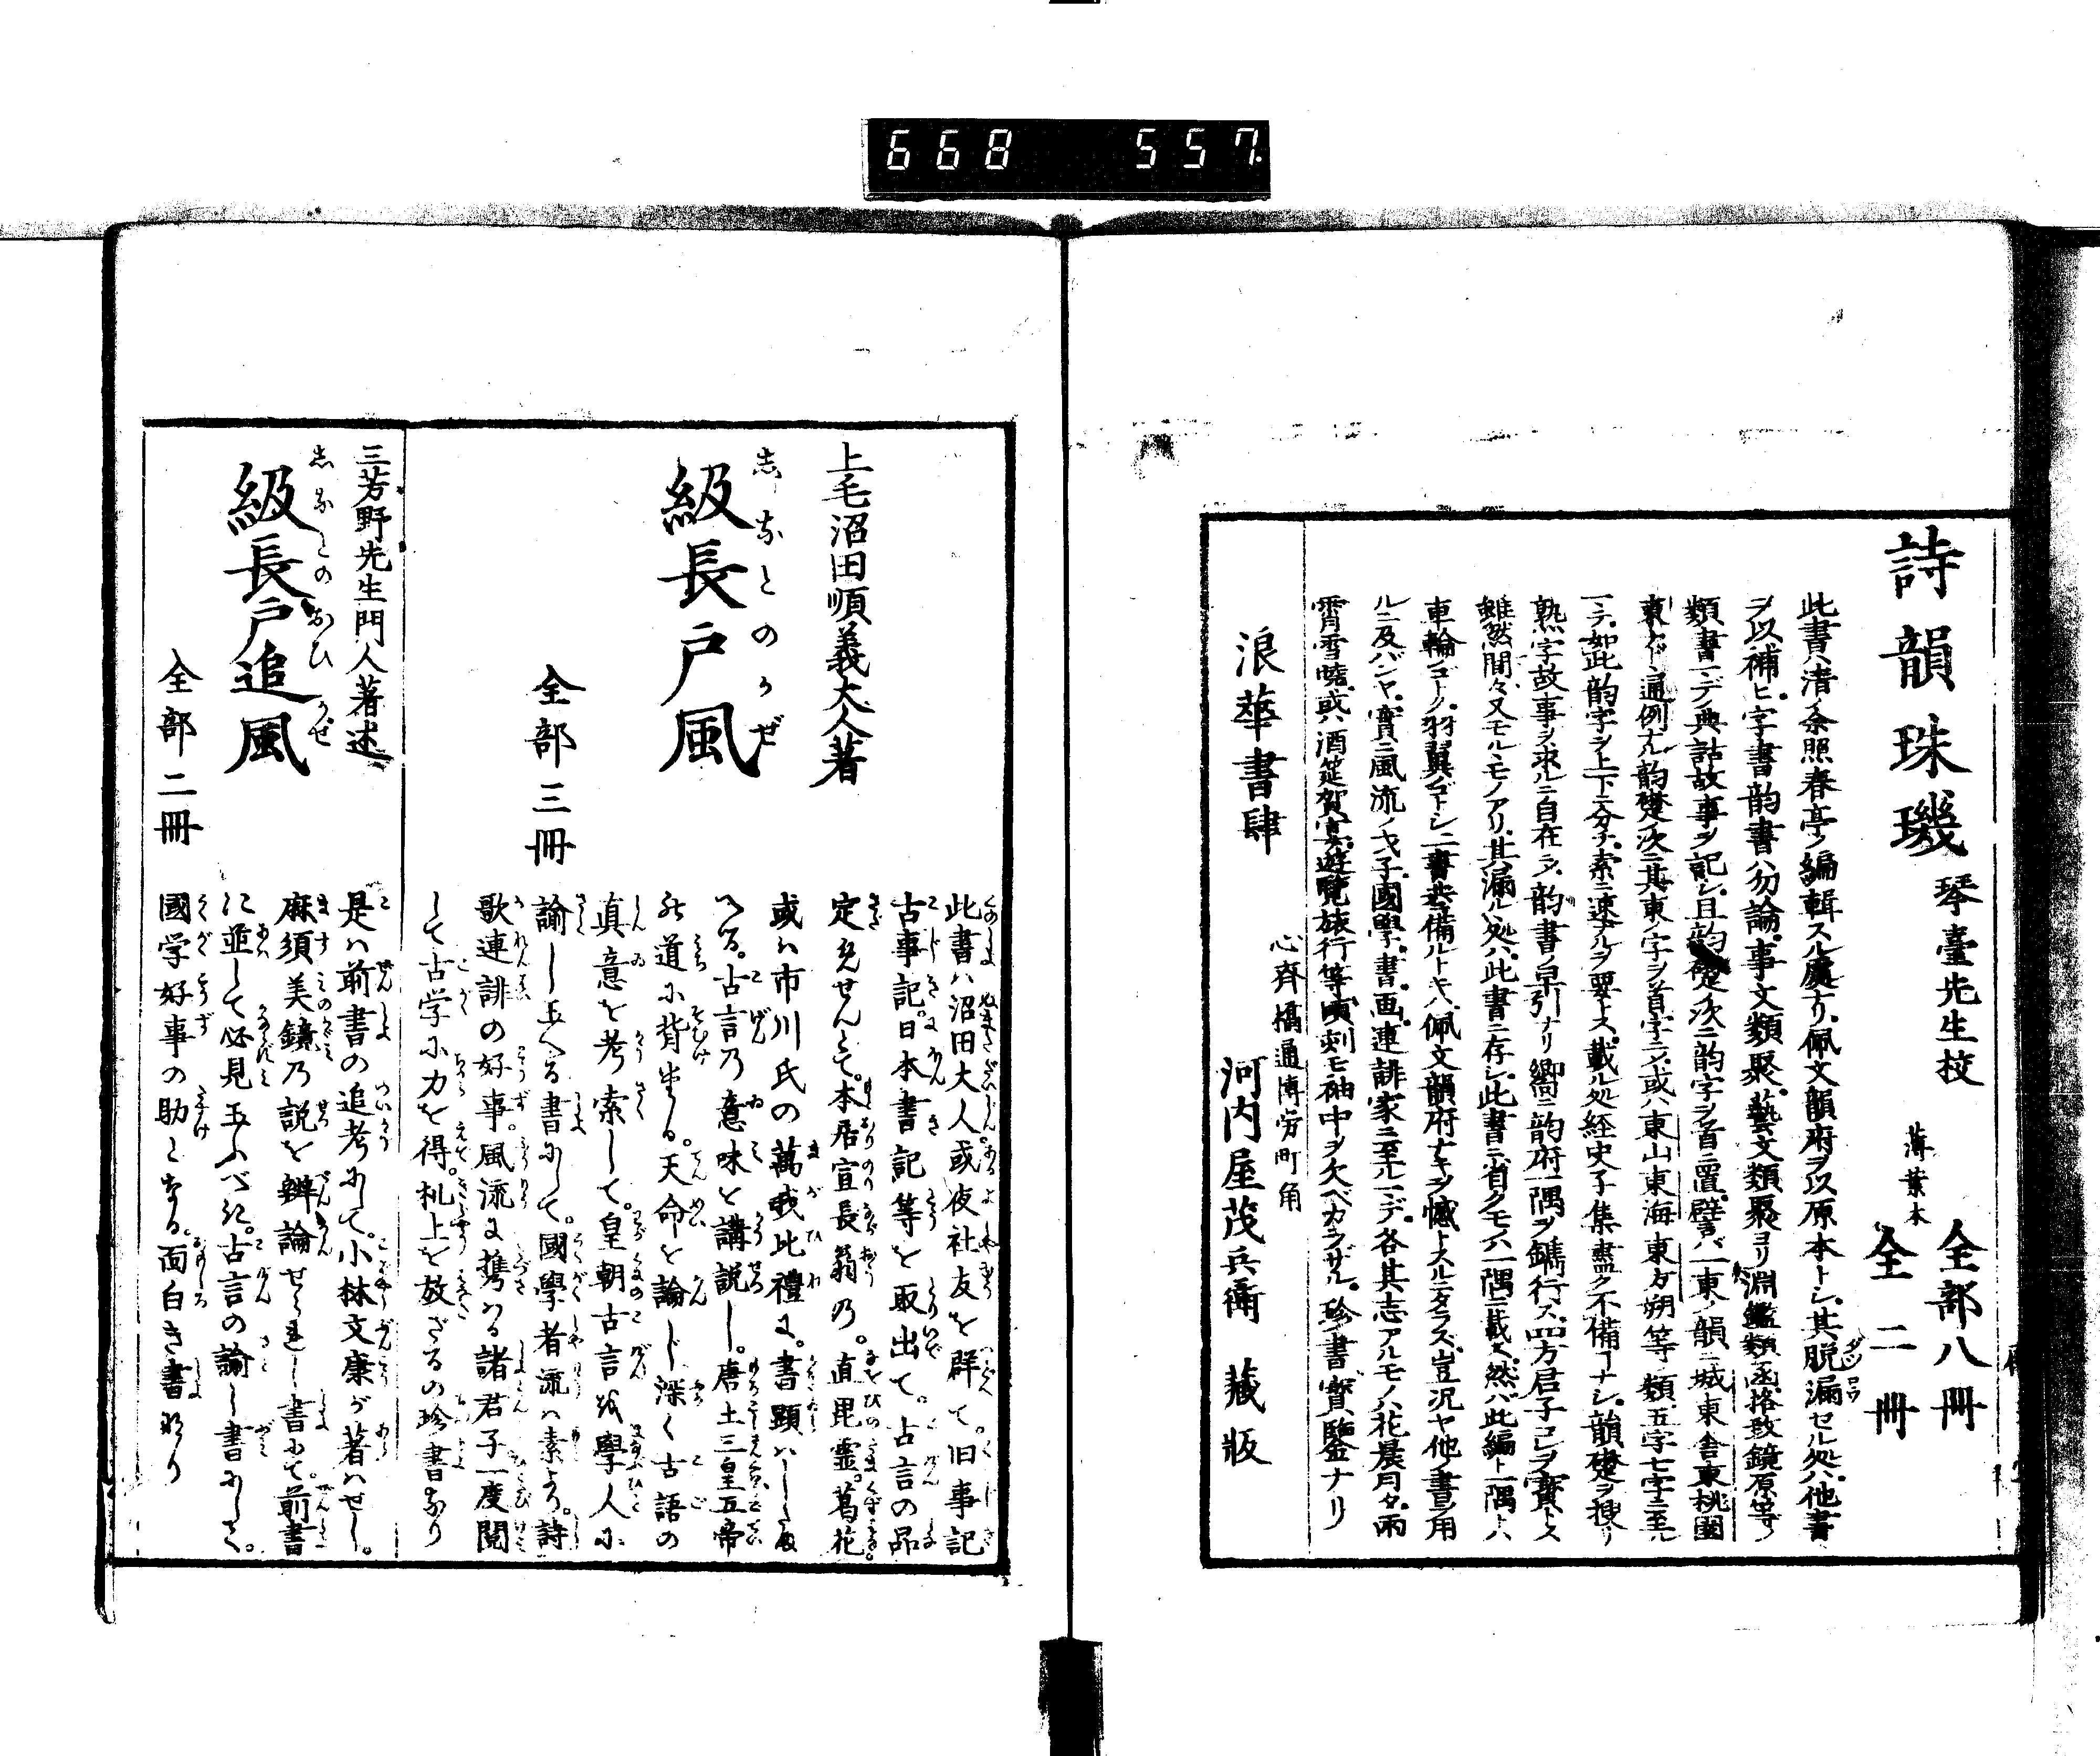 668 557.
詩韻珠璣
琴臺先生校
全部八冊
薄葉本
全二冊
此書ハ清ノ余照春亭ノ編輯スル處ナリ佩文韻府ヲ以原本トシ其脱漏セル処ハ他書
ヲ以補ヒ字書韵書ハ勿論事文類聚藝文類聚ヨリ淵鑑類函格致鏡原等ノ
類書マデノ典詁故事ヲ記シ且韵礎ノ次ニ韵字ヲ首ニ置譬バ一東ノ韻ニ城東舎東桃園
東ナド通例ナル韵礎ノ次ニ其東ノ字ヲ首字ニシ或ハ東山東海東方朔等ノ類五字七字ニ至ル
マデ如此韵字ヲ上下ニ分チ索ニ速ナルヲ要トス載ル処経史子集盡ク不備コナシ韻礎ヲ捜リ
熟字故事ヲ求ルニ自在ニシテ韵書ノ早引ナリ嚮ニ韵府一隅ヲ鐫行ス四方君子コレヲ寳トス
雖然間々又モルヽモノアリ其漏ルヽ処ハ此書ニ存シ此書ニ省クモノハ一隅ニ載ス然バ此編ト一隅トハ
車輪ノゴトク羽翼ノゴトシ二書共ニ備ルトキハ佩文韻府ナキヲ憾トスルニタラズ豈况ヤ他ノ書ヲ用
ルニ及バンヤ實ニ風流ノ才子國學書画連誹家ニ至ルマデ各其志アルモノハ花晨月夕雨
霄雪暁或ハ酒筵賀宴遊覧旅行等頃刻モ袖中ヲ欠ベカラザル珍書寳鑒ナリ
浪華書肆
心斉橋通博労町角
河内屋茂兵衛 藏版
上毛沼田順義大人著
級長戸風
志なとのかぜ
全部三冊
此書ハ沼田大人或夜社友を群て旧事記
古事記日本書記等を取出て古言の品
定めせんとて本居宣長翁の直毘霊葛花
或ハ市川氏の萬我比禮に書顕ハしたま
へる古言乃意味を講説し唐土三皇五帝
の道に背ける天命を論じ深く古語の
真意を考索して皇朝古言を學人に
論し玉へる書にして國學者流ハ素より詩
歌連誹の好事風流に携ハる諸君子一度閲
して古学に力を得机上を放ざるの珍書なり
三芳野先生門人著述
級長戸追風
志なとのおひかぜ
全部二冊
是ハ前書の追考にして小林文康が著ハせし
麻須美鏡乃説を辨論せられし書にて前書
に並して必見玉ふべき古言の論し書にして
國学好事の助となる面白き書なり